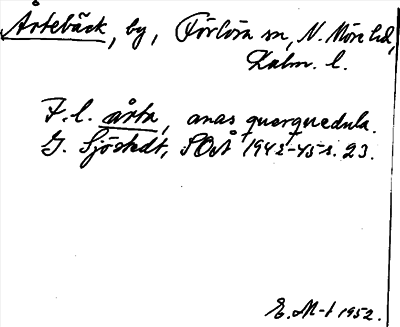 Årtebäck, by, Förlösa sn, N. Möre hd,
Kalm. l.
F. l. årta, anas querquedula.
G. Sjöstedt, SOÅ 1942-45 s. 23.
E. M-t 1952.